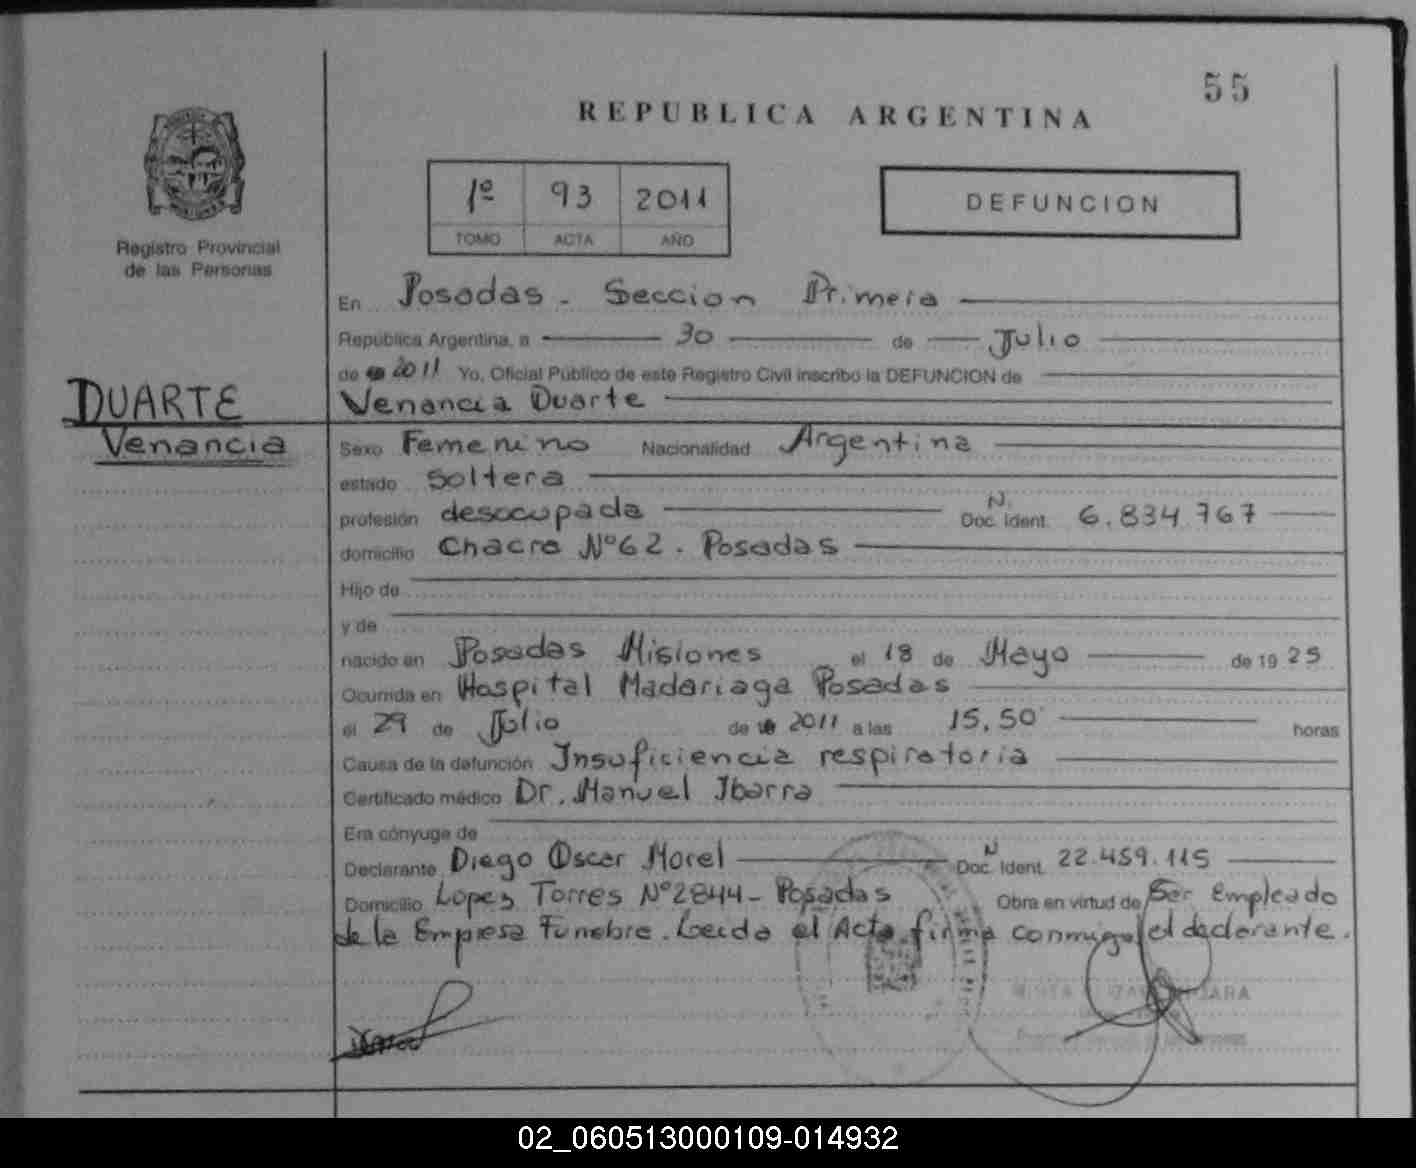 55
REPUBLICA ARGENTINA
1º 93 2011
TOMO ACTA AÑO
DEFUNCION
Registro Provincial
de las Personas
En Posadas - Seccion Primera
República Argentina, a 30 de Julio
de 2011 Yo, Oficial Público de este Registro Civil inscribo la DEFUNCION de
DUARTE
Venancia Duarte
Venancia
Sexo Femenino Nacionalidad Argentina
estado Soltera
profesión desocupada N. Doc. Ident. 6.834.767
domicilio Chacra Nº62. Posadas
Hijo de
y de
nacido en Posadas Misiones el 18 de Mayo de 19 25
Ocurrida en Hospital Madariaga Posadas
el 29 de Julio de 2011 a las 15,50 horas
Causa de la defunción Insuficiencia respiratoria
Certificado médico Dr. Manuel Ibarra
Era cónyuge de
Declarante Diego Oscar Morel N Doc. Ident. 22.459.115
Domicilio Lopez Torres Nº2844- Posadas Obra en virtud de Ser Empleado
de la Empresa Funebre. Leida el Acta firma conmigo el declarante.
02_060513000109-014932